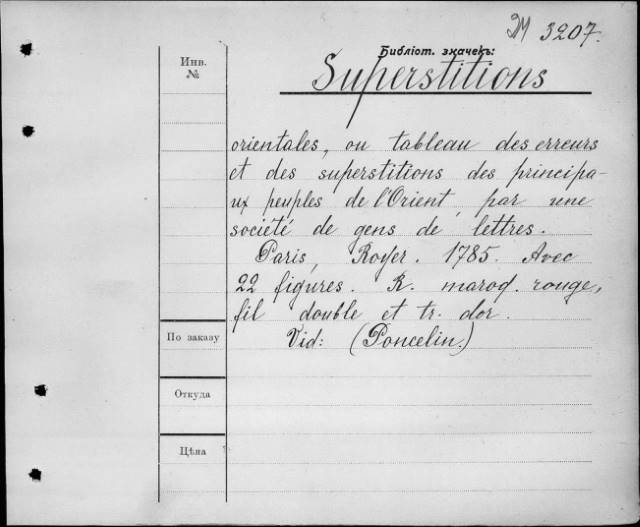 M 3207.
Библіот. значекъ:
Инв.
№
Superstitions
orientales, ou tableau des erreurs
et des superstitions des principa-
ux peuples de l'Orient, par une
société de gens de lettres.
Paris, Royer. 1785. Avec
22 figures. R. maroq. rouge,
fil double et tr. dor.
Vid: (Poncelin.)
По заказу
Откуда
Цѣна